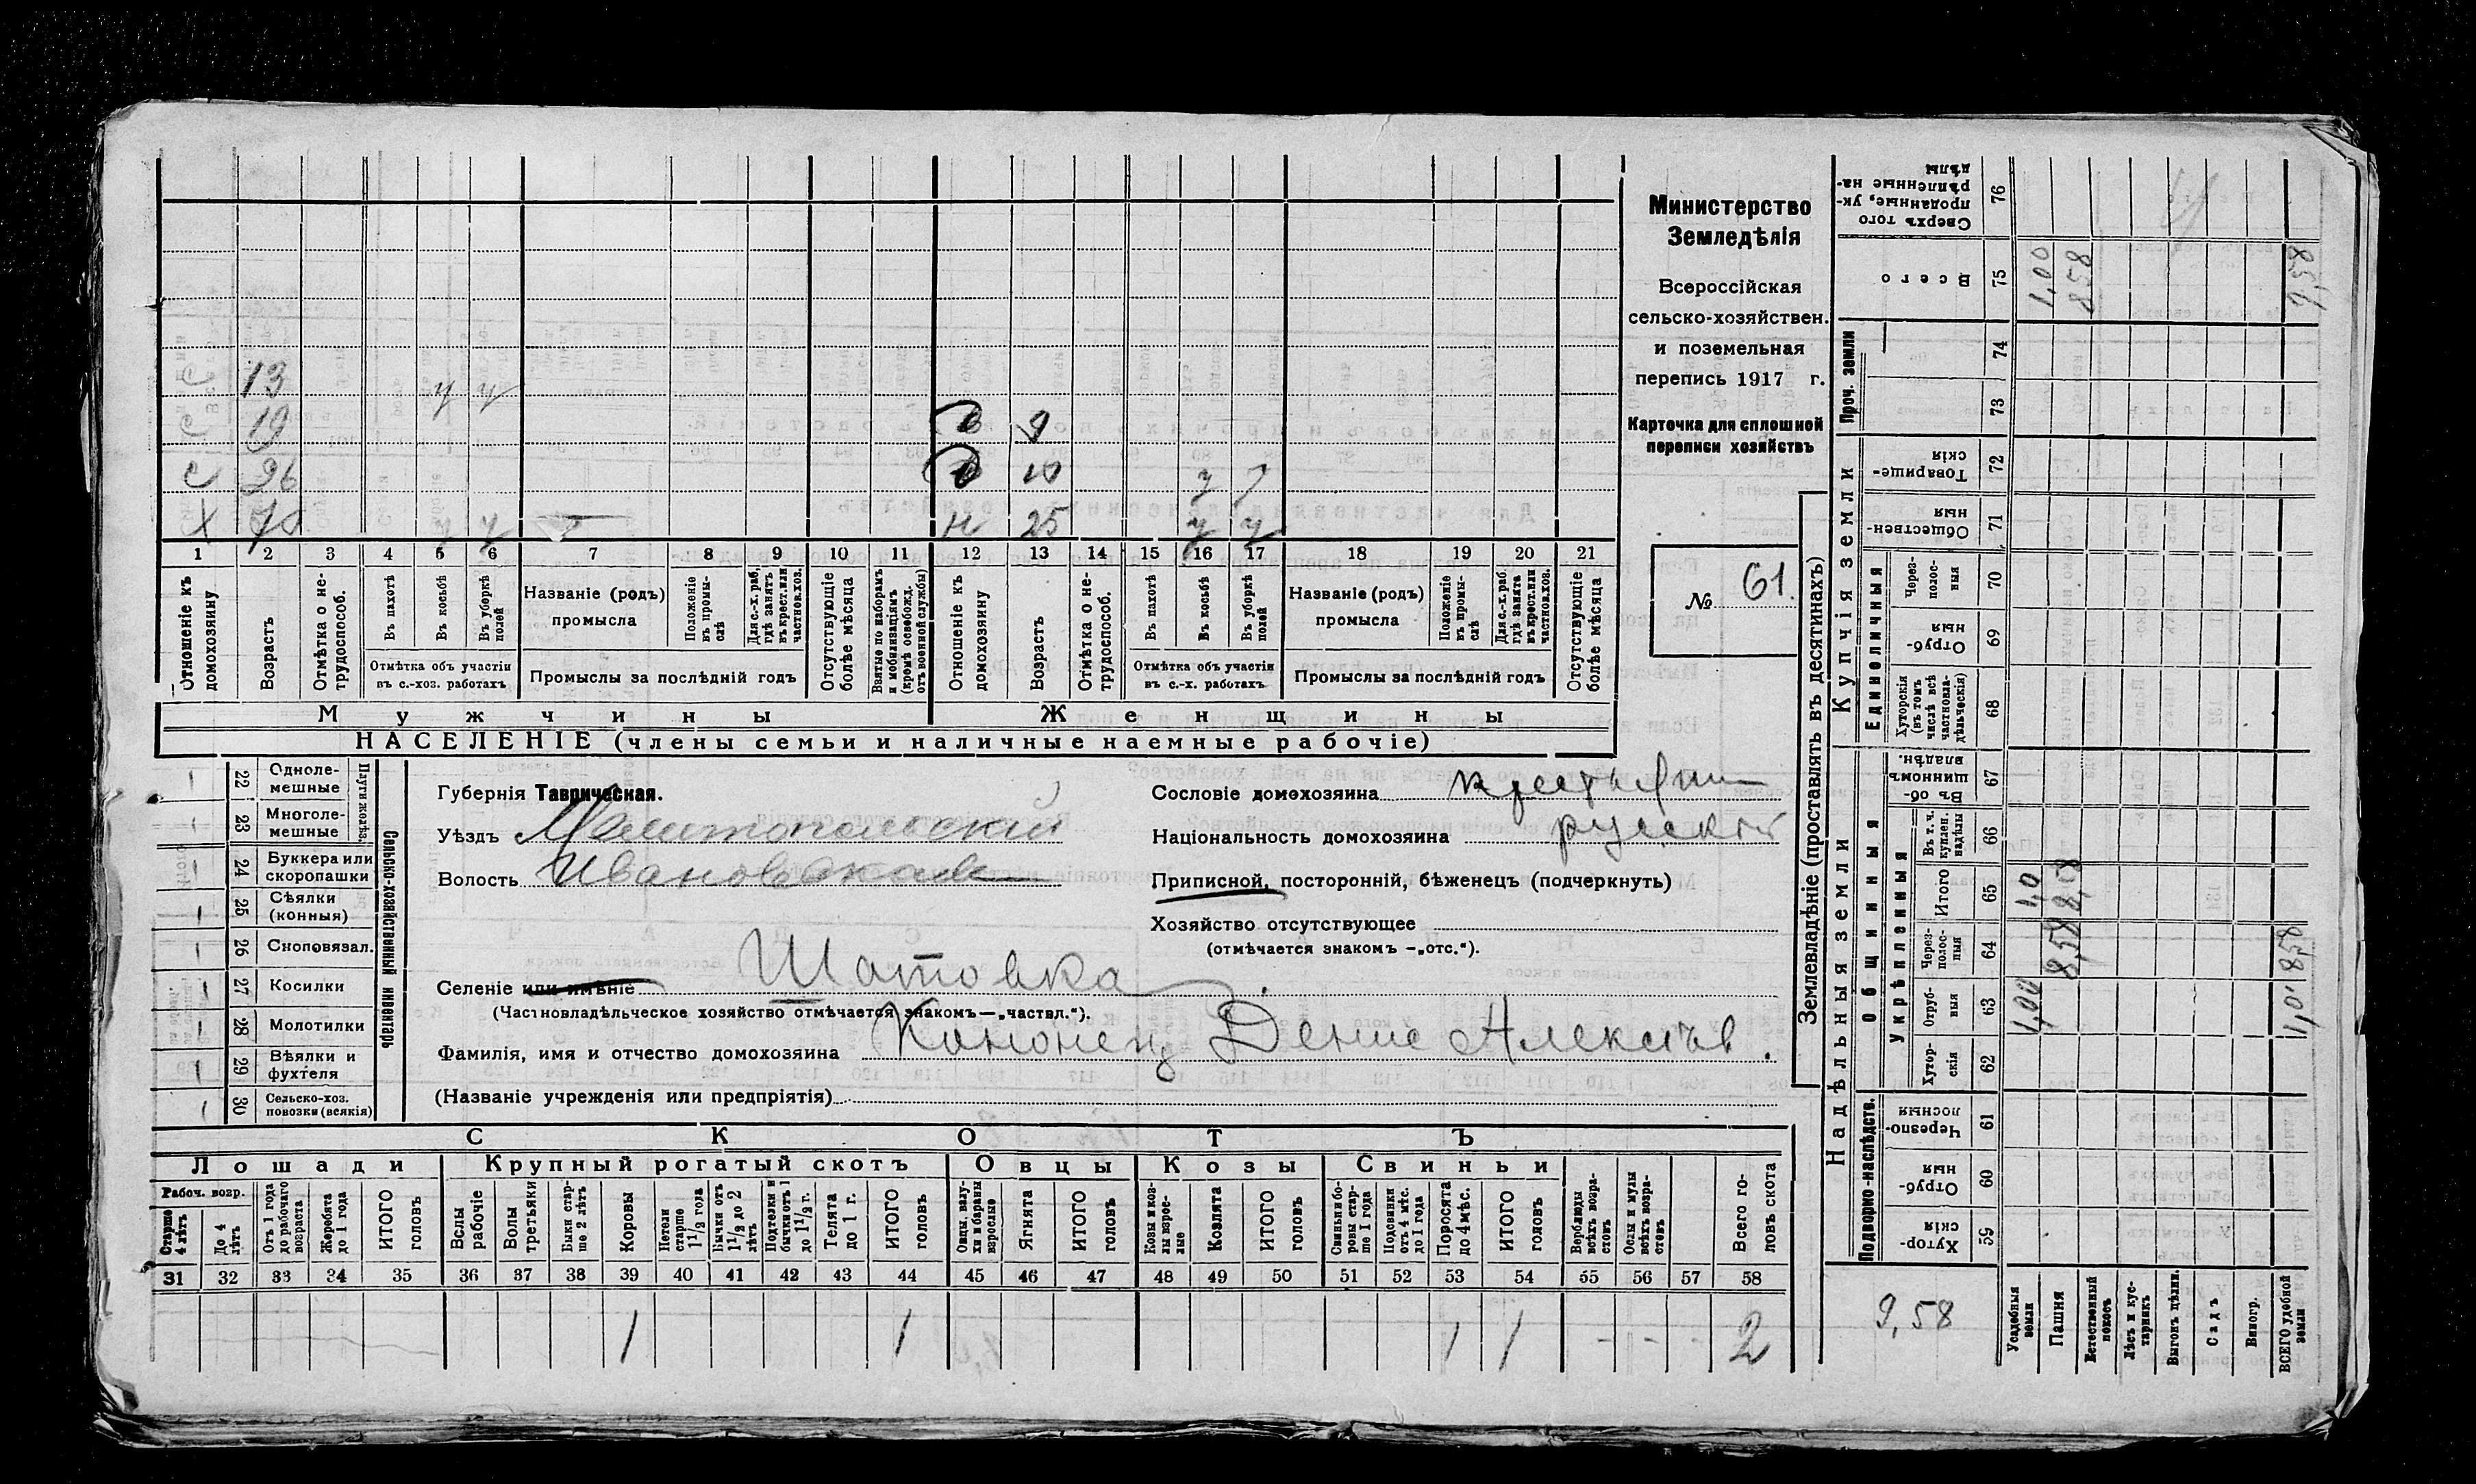 С 13 у у
С 19 д 9
С 26 д 10 у у
Х у у н 25 у у
1 2 3 4 5 6 7 8 9 10 11 12 13 14 15 16 17 18 19 20 21
Отношеніе къ домохозяину
Возрастъ
Отмѣтка о нетрудоспособ.
Въ пахотѣ
Въ косьбѣ
Въ уборкѣ полей
Отмѣтка объ участіи
въ с.-хоз. работахъ
Названіе (родъ)
промысла
Положеніе въ промыслѣ
Для с.-х. раб. гдѣ занятъ въ крест. или частнов. хоз.
Промыслы за послѣдній годъ
Отсутствующіе болѣе мѣсяца
Взятые по наборамъ и мобилизаціямъ (кромѣ освобожд. отъ военной службы)
Отношеніе къ домохозяину
Возрастъ
Отмѣтка о нетрудоспособ.
Въ пахотѣ
Въ косьбѣ
Въ уборкѣ полей
Отмѣтка объ участіи
въ с.-х. работахъ
Названіе (родъ)
промысла
Положеніе въ промыслѣ
Для с.-х. раб. гдѣ занята въ крест. или частнов. хоз.
Промыслы за послѣдній годъ
Отсутствующіе болѣе мѣсяца
Мужчины Женщины
НАСЕЛЕНІЕ (члены семьи и наличные наемные рабочіе)
Министерство
Земледѣлія
Всероссійская
сельско-хозяйствен.
и поземельная
перепись 1917 г.
Карточка для сплошной
переписи хозяйствъ
№ 61.
22 Однолемешные
23 Многолемешные
Плуги желѣз.
24 Буккера или скоропашки
25 Сѣялки (конныя)
26 Сноповязал.
27 Косилки
28 Молотилки
29 Вѣялки и фухтеля
30 Сельско-хоз. повозки (всякія)
Сельско-хозяйственный инвентарь
Губернія Таврическая.
Уѣздъ Мелитопольскій
Волость Ивановская
Сословіе домохозяина
Національность домохозяина русскій
Приписной, посторонній, бѣженецъ (подчеркнуть)
Хозяйство отсутствующее
(отмѣчается знакомъ —„отс.“).
Селеніе или имѣніе Шатовка
(Частновладѣльческое хозяйство отмѣчается знакомъ—„частвл.“).
Фамилія, имя и отчество домохозяина Кононец Денис Алексѣев.
(Названіе учрежденія или предпріятія)
СКОТЪ
Лошади Крупный рогатый скотъ Овцы Козы Свиньи
Рабоч. возр.
Старше 4 лѣтъ
До 4 лѣтъ
Отъ 1 года до рабочаго возраста
Жеребята до 1 года
ИТОГО головъ
Волы рабочіе
Волы третьяки
Быки старше 2 лѣтъ
Коровы
Нетели старше 1½ года
Бычки отъ 1½ до 2 лѣтъ
Подтелки и бычки отъ 1 до 1½ г.
Телята до 1 г.
ИТОГО головъ
Овцы, валухи и бараны взрослые
Ягнята
ИТОГО головъ
Козы и козлы взрослые
Козлята
ИТОГО головъ
Свиньи и боровы старше 1 года
Подсвинки отъ 4 мѣс. до 1 года
Поросята до 4 мѣс.
ИТОГО головъ
Верблюды всѣхъ возрастовъ
Ослы и мулы всѣхъ возрастовъ
Всего головъ скота
31 32 33 34 35 36 37 38 39 40 41 42 43 44 45 46 47 48 49 50 51 52 53 54 55 56 57 58
1 1 1 1 - - - 2
Землевладѣніе (проставлять въ десятинахъ)
Надѣльныя земли Купчія земли Проч. земли
Подворно-наслѣдств. Общинныя Единоличныя
Укрѣпленныя
59 Хуторскія
60 Отрубныя
61 Черезполосныя
62 Хуторскія
63 Отрубныя 1,00 1,0
64 Черезполосныя 8,58 8,58
65 Итого 1,0 8,58
66 Въ т. ч. куплен. надѣлы
67 Въ общинномъ владѣн.
68 Хуторскія (въ томъ числѣ всѣ частновладѣльческія)
69 Отрубныя
70 Черезполосныя
71 Общественныя
72 Товарищескія
73
74
75 Всего 1,00 8,58 9,58
76 Сверхъ того проданные, укрѣпленные надѣлы
9,58
Усадебныя земли
Пашня
Естественный покосъ
Лѣсъ и кустарникъ
Выгонъ цѣлин.
Садъ
Виногр.
ВСЕГО удобной земли